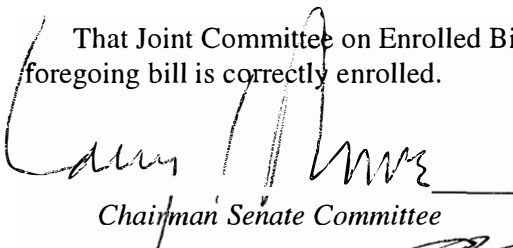 That Joint Committee on Enrolled Bi
foregoing bill is correctly enrolled.
Chairman Senate Committee